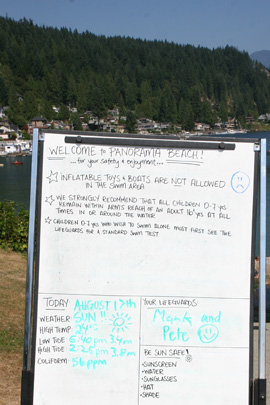 WELCOME TO PANORAMA BEACH!
...for your safety & enjoyment...
INFLATABLE TOYS & BOATS ARE NOT ALLOWED
IN THE SWIM AREA
WE STRONGLY RECOMMEND THAT ALL CHILDREN 0-7 yrs
REMAIN WITHIN ARM'S REACH OF AN ADULT 16+yrs AT ALL
TIMES IN OR AROUND THE WATER
CHILDREN 0-7 yrs WHO WISH TO SWIM ALONE MUST FIRST SEE THE
LIFEGUARDS FOR A STANDARD SWIM TEST
TODAY AUGUST 17th
WEATHER: SUN!!
HIGH TEMP 24°
LOW TIDE 8:40 pm 3.4m
HIGH TIDE 2:25 pm 3.8m
COLIFORM: 56 ppm
YOUR LIFEGUARDS:
and
Pete
BE SUN SAFE!
•SUNSCREEN
•WATER
•SUNGLASSES
•HAT
•SHADE